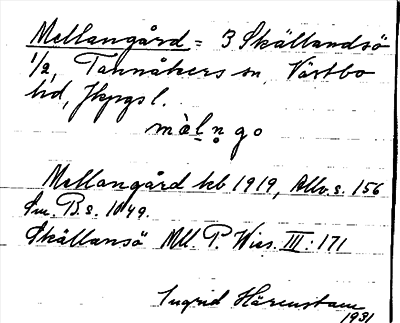 Mellangård = 3 Skällandsö
1/2, Tannåkers sn, Västbo
hd, Jkpgs l.
mὰl̥n̥go
Mellangård kb 1919, Allv. s. 156
Sm. B. s. 1049.
Skällansö Mll P. Wies. III: 171
Ingrid Härenstam
1931